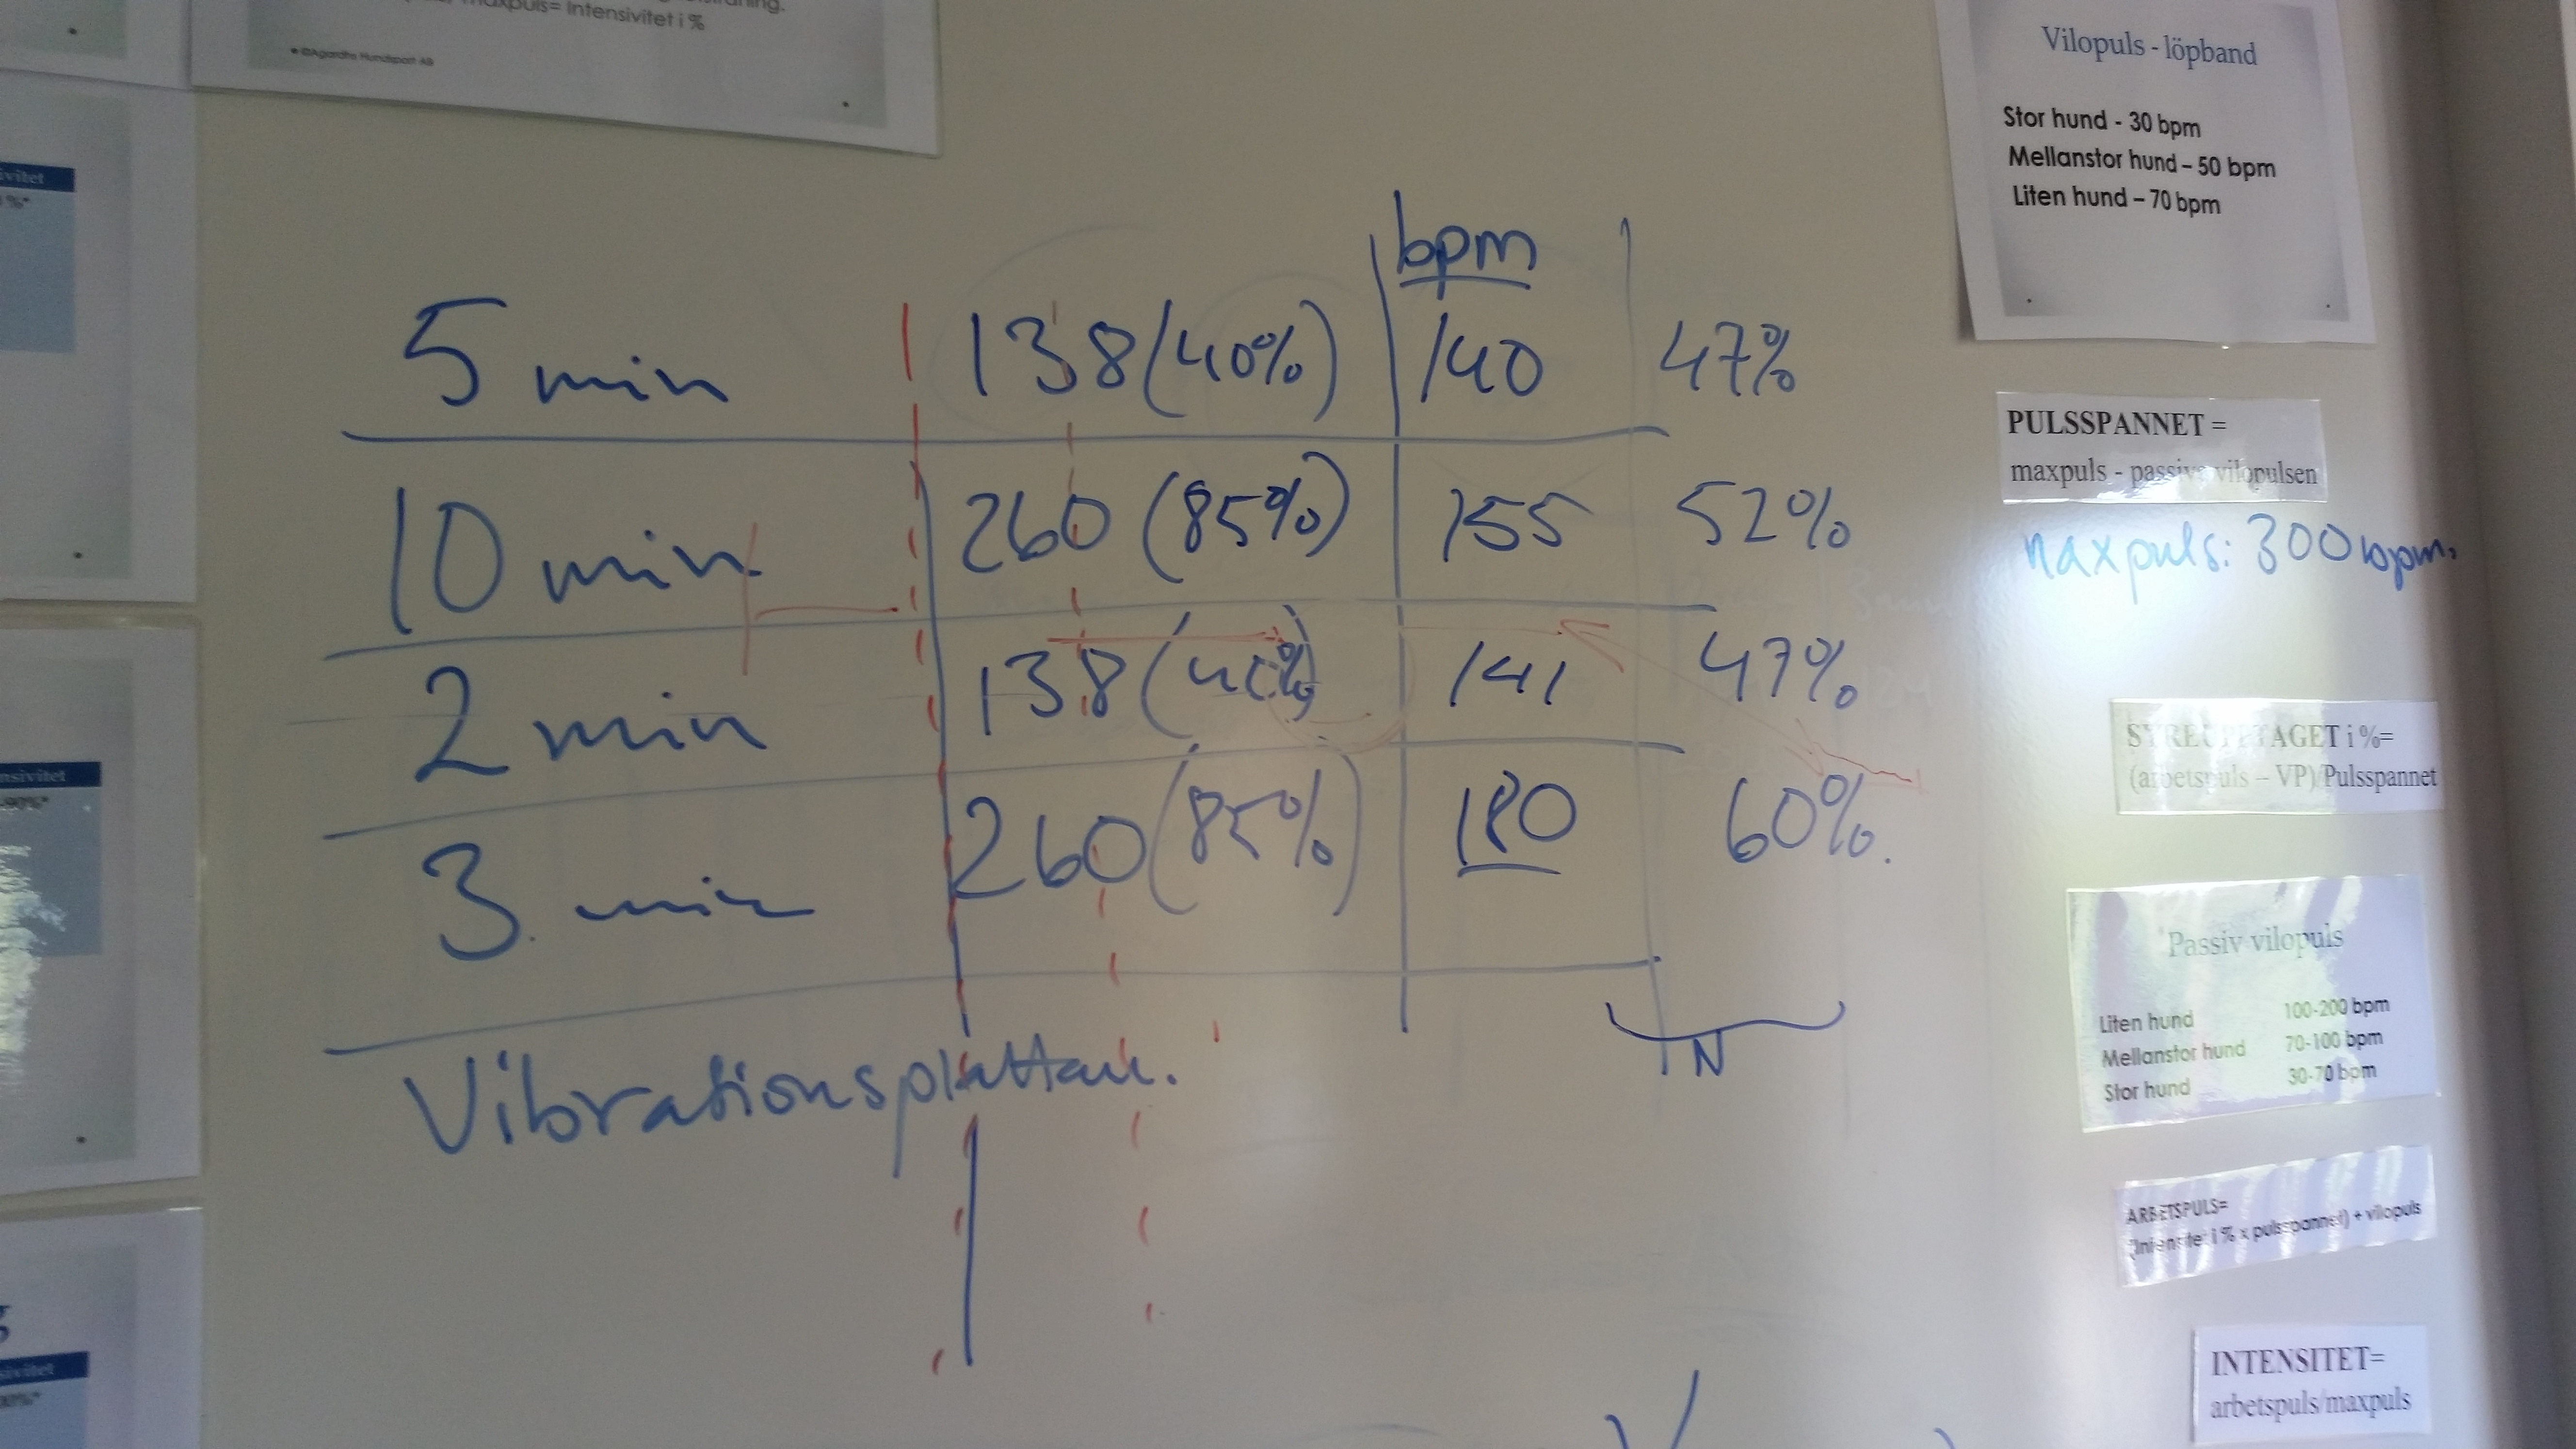 maxpuls= Intensivitet i %
©Agardhs Hundsport AB
Vilopuls - löpband
Stor hund - 30 bpm
Mellanstor hund – 50 bpm
Liten hund – 70 bpm
bpm
5 min 138 (40%) 140 47%
10 min 260 (85%) 155 52%
2 min 138 (40%) 141 47%
3 min 260 (85%) 180 60%.
N
Vibrationsplattan.
PULSSPANNET =
maxpuls - passiva vilopulsen
maxpuls: 300 bpm.
SYREUPPTAGET i %=
(arbetspuls – VP)/Pulsspannet
Passiv vilopuls
Liten hund 100-200 bpm
Mellanstor hund 70-100 bpm
Stor hund 30-70 bpm
ARBETSPULS=
(Intensitet i % x pulsspannet) + vilopuls
INTENSITET=
arbetspuls/maxpuls